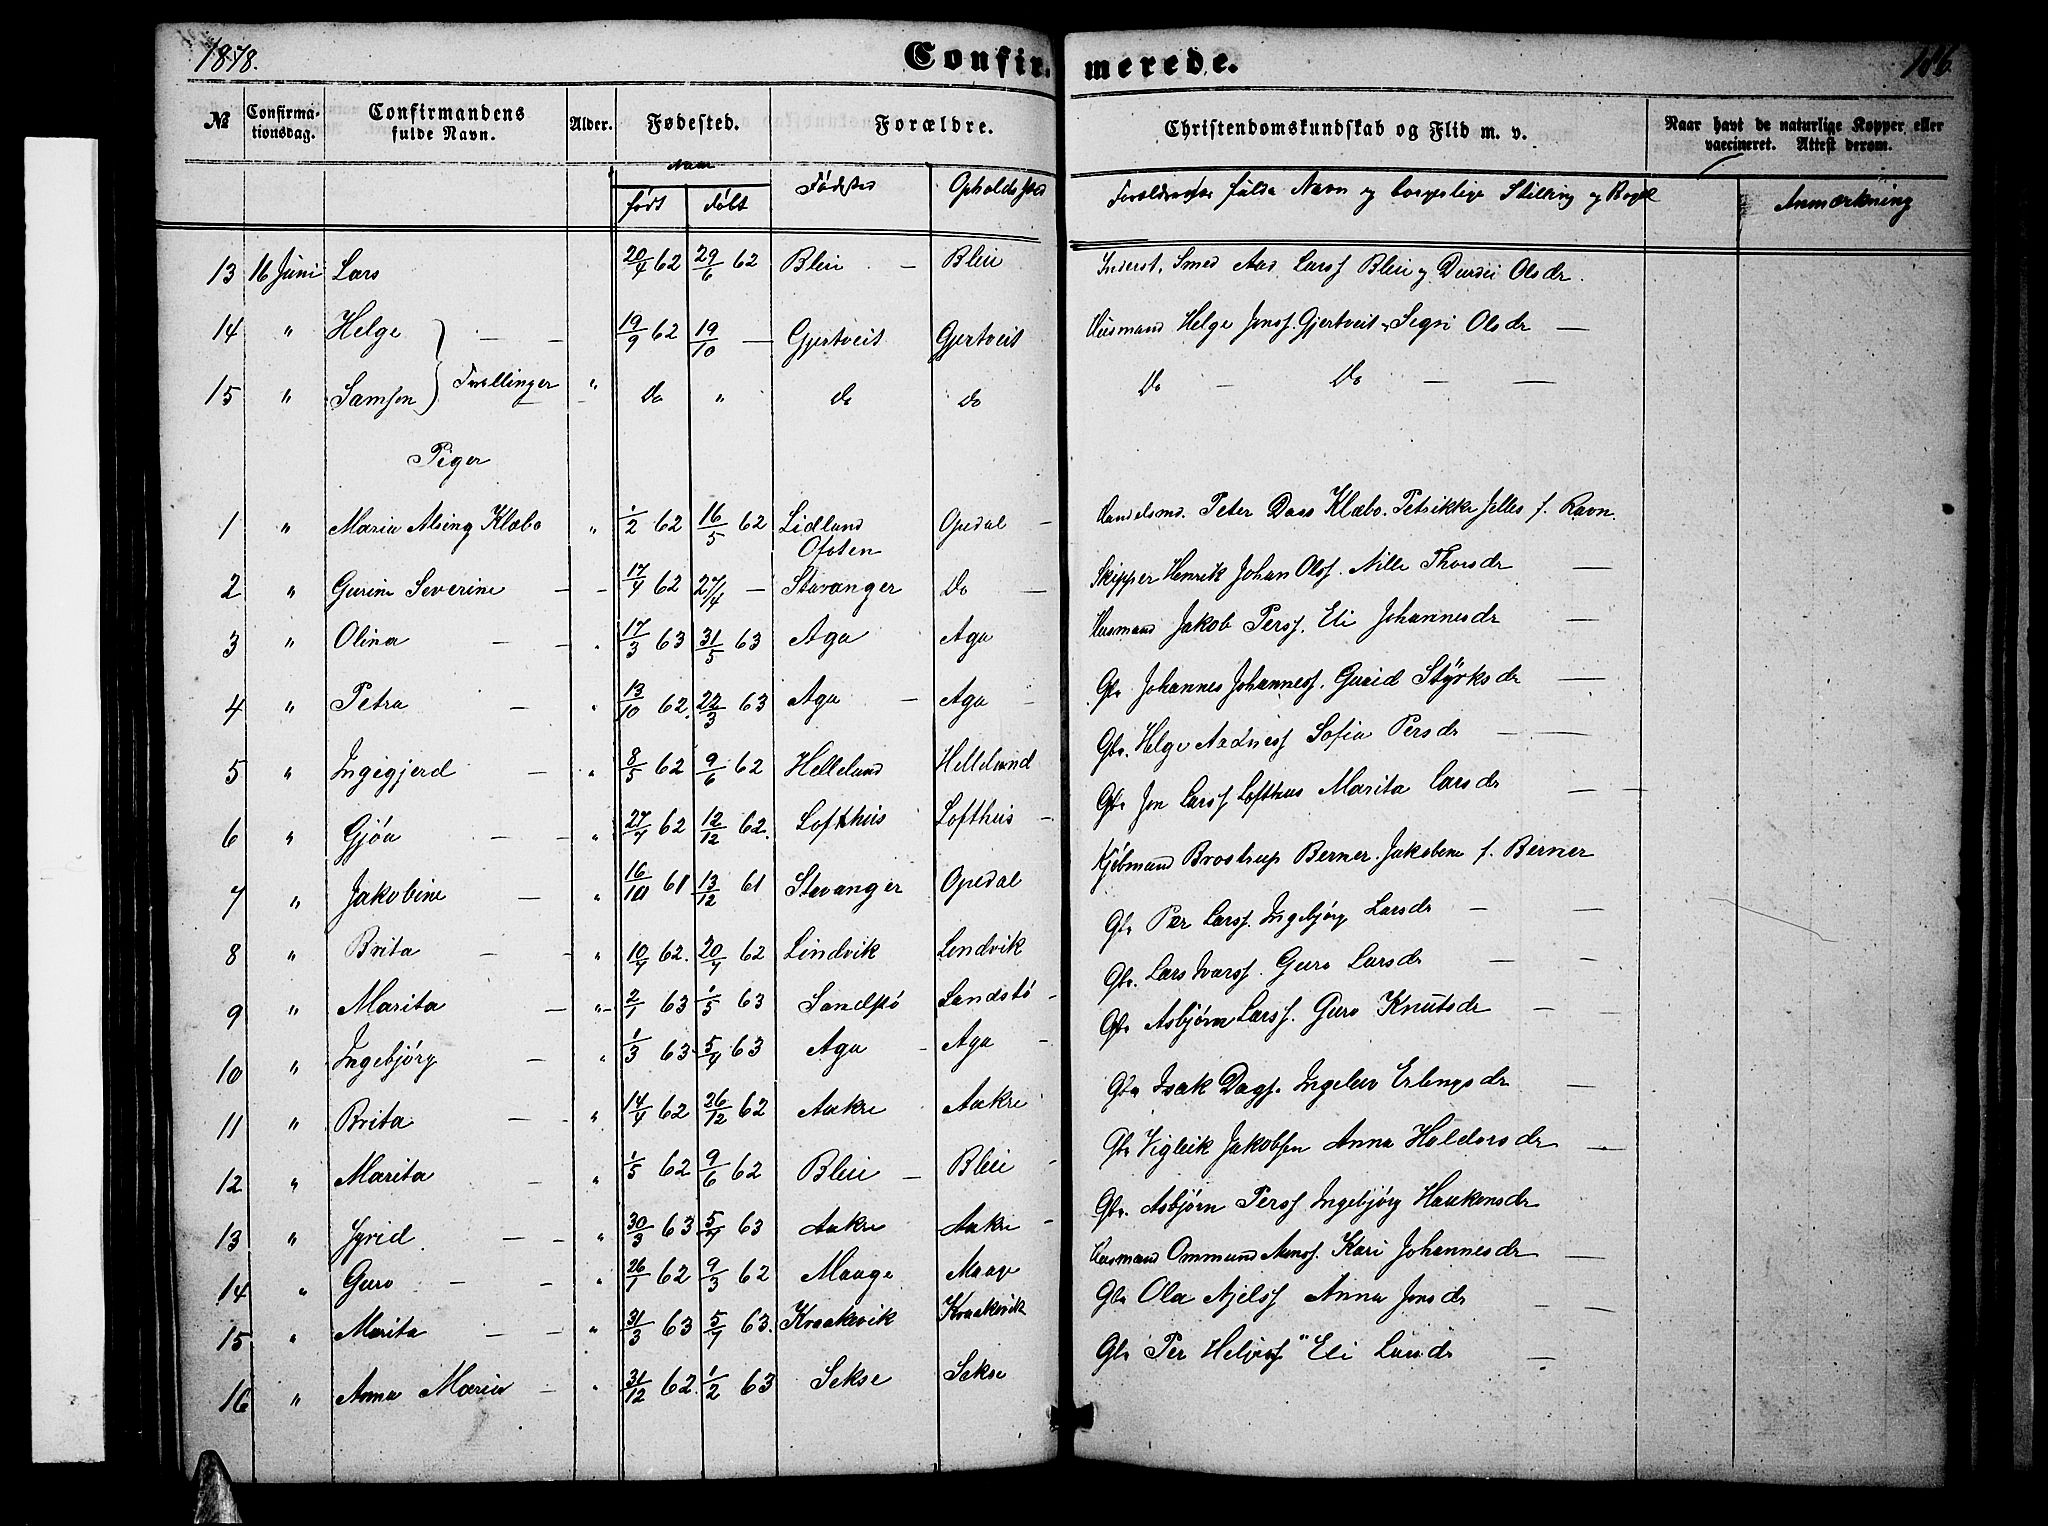 1878.
Confir- merede.
116
№ Confirmationsdag. Confirmandens fulde Navn. Alder. Fødested. Forældre. Christendomskundskab og Flid m. v. Naar havt de naturlige Kopper eller vaccineret. Attest derom.
Naar
født døbt Fødested Opholdssted Forældrenes fulde Navn og borgerlige Stilling og Bopæl Anmærkning
13 16 Juni Lars 20/4 62 29/6 62 Bleie - Bleie Inderst, Smed Aad Larss Bleie og Durdei Olsdr.
14 " Helge - - 19/9 62 19/10 - Gjertveit Gjertveit Husmand Helge Jonss. Gjertveit Segri Olsdr -
15 " Samson } Tvillinger " Do " do do Do - Do - -
Piger
1 " Maria Alsing Klæbo " 1/2 62 16/5 62 Lidland Ofoten Opedal - Handelsmd. Peter Dass Klæbo. Petrikke Jelles f. Ravn.
2 " Gurine Severine - - 17/4 62 27/4 - Stavanger Do - Skipper Henrik Johan Olss. Nille Thorsdr -
3 " Olina - - " 17/3 63 31/5 63 Aga Aga Husmand Jakob Perss. Eli Johannesdr -
4 " Petra - " 13/10 62. 22/3 63 Aga - Aga - Gbr. Johannes Johanness. Gurid Styrksdr -
5 " Ingigjerd - " 8/5 62 9/6 62 Helleland Helleland Gbr. Helge Aadness Sofia Persdr - -
6 " Gjøa - " 27/7 62 12/12 62. Lofthus Lofthus - Gbr Jon Larss Lofthus Marita Larsdr - -
7 " Jakobine - " 16/10 61 13/12 61 Stavanger Opedal Kjøbmand Brostrup Berner. Jakobine f. Berner
8 " Brita - " 10/7 62. 20/7 62 Lindvik Lindvik Gbr Per Larss. Ingebjørg Larsdr - -
9 " Marita - " - 2/1 63 1/5 63 Sandstø Sandstø - Gbr. Lars Ivarss. Guro Larsdr - -
10 " Ingebjørg - " 1/3 63. 5/4 63 Aga - Aga - Gbr Asbjørn Larss. Guro Knutsdr - -
11 " Brita - " 14/4 62 26/12 62 Aakre Aakre Gbr Isak Dags. Ingeleiv Erlingsdr -
12 " Marita - " 1/5 62 9/6 62 Bleie - Bleie - Gbr Vigleik Jakobsen Anna Haldorsdr -
13 " Syrid - - " 30/3 63 5/4 63 Aakre Aakre - Gbr. Asbjørn Perss Ingebjørg Haakonsdr
14 " Guro - - " 26/1 62 9/3 62 Maage Maage Husmand Ommund Amss. Kari Johannesdr -
15 " Marita - - " 31/3 63 5/4 63. Kraakevik Kraakevik Gbr Ola Ajelss Anna Jonsdr - -
16 " Anna Maria - " 31/12 62. 1/2 63 Sekse Sekse Gbr Per Helgess " Eli Larsdr -